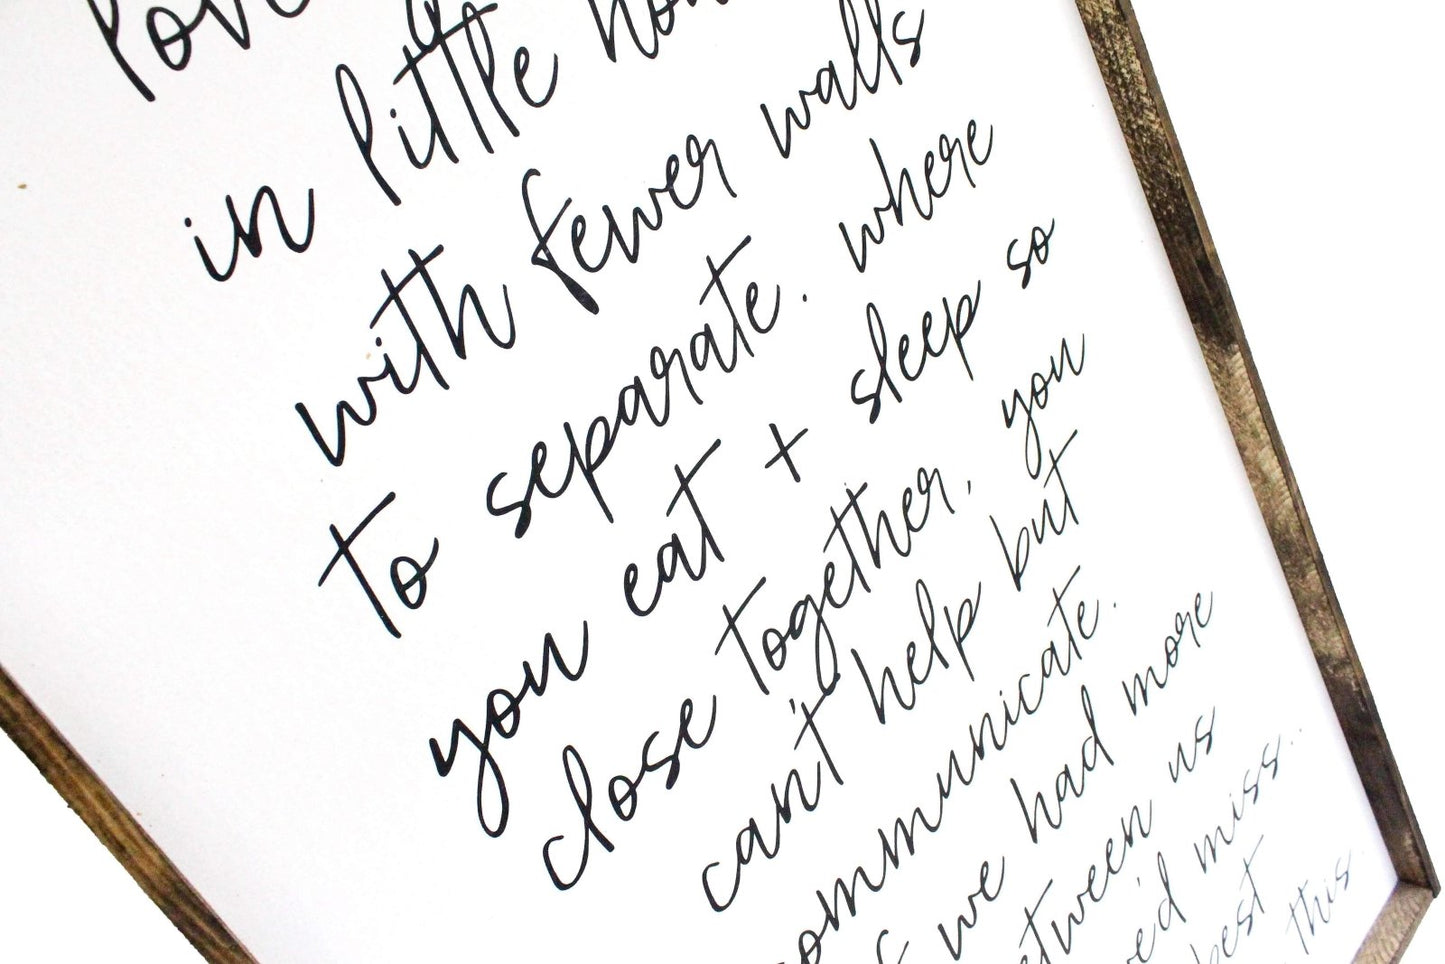 in little
with fewer walls
to separate. where
you eat + sleep so
close together, you
can't help but
communicate.
we had more
us
miss...
this